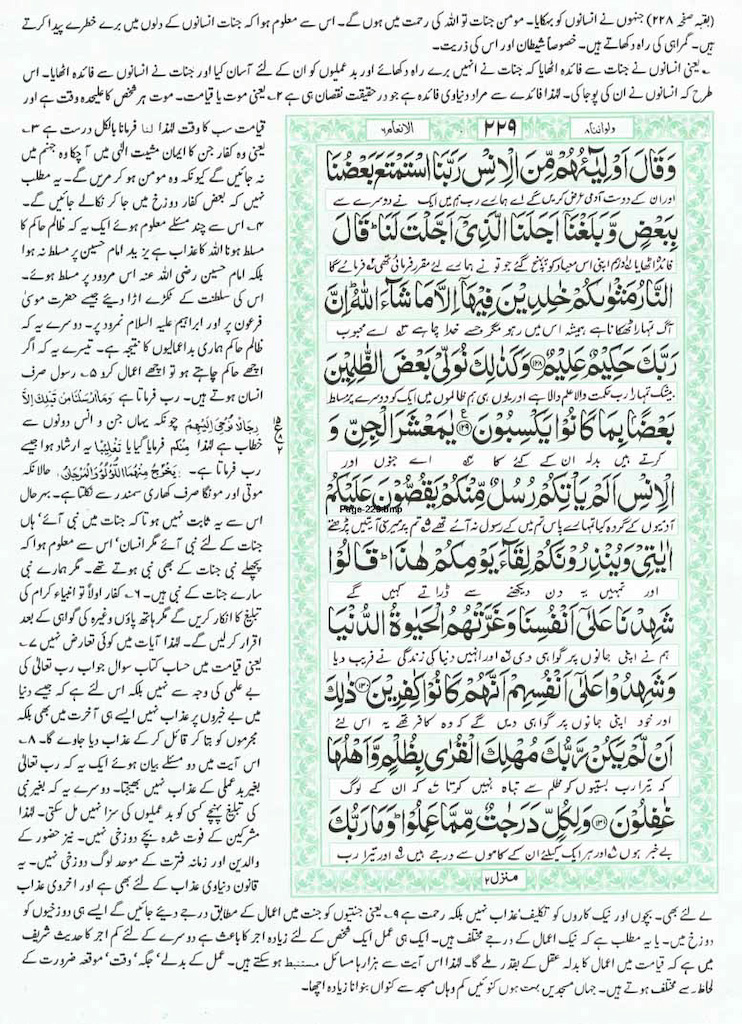 (بقیہ صفحہ ۲۲۸) جنہوں نے انسانوں کو بہکایا۔ مومن جنات تو اللہ کی رحمت میں ہوں گے۔ اس سے معلوم ہوا کہ جنات انسانوں کے دلوں میں برے خطرے پیدا کرتے
ہیں۔ گمراہی کی راہ دکھاتے ہیں۔ خصوصاً شیطان اور اس کی ذریت۔
۱؎ یعنی انسانوں نے جنات سے فائدہ اٹھایا کہ جنات نے انہیں برے راہ دکھائے اور بد عملیوں کو ان کے لئے آسان کیا اور جنات نے انسانوں سے فائدہ اٹھایا۔ اس
طرح کہ انسانوں نے ان کی پوجا کی۔ لہٰذا فائدے سے مراد دنیاوی فائدہ ہے جو درحقیقت نقصان ہی ہے ۲؎ یعنی موت یا قیامت۔ موت ہر شخص کا علیحدہ وقت ہے اور
قیامت سب کا وقت لہٰذا لنا فرمانا بالکل درست ہے ۳؎
یعنی وہ کفار جن کا ایمان مشیت الٰہی میں آچکا وہ جہنم میں
نہ جائیں گے کیونکہ وہ مومن ہو کر مریں گے۔ یہ مطلب
نہیں کہ بعض کفار دوزخ میں جا کر نکالے جائیں گے۔
۴؎ اس سے چند مسئلے معلوم ہوئے ایک یہ کہ ظالم حاکم کا
مسلط ہونا اللہ کا عذاب ہے یزید امام حسین پر مسلط نہ ہوا
بلکہ امام حسین رضی اللہ عنہ اس مردود پر مسلط ہوئے۔
اس کی سلطنت کے ٹکڑے اڑا دیئے جیسے حضرت موسیٰ
فرعون پر اور ابراہیم علیہ السلام نمرود پر۔ دوسرے یہ کہ
ظالم حاکم ہماری بداعمالیوں کا نتیجہ ہے۔ تیسرے یہ کہ اگر
اچھے حاکم چاہتے ہو تو اچھے اعمال کرو ۵؎ رسول صرف
انسان ہوتے ہیں۔ رب فرماتا ہے وَمَا اَرْسَلْنَا مِنْ قَبْلِكَ اِلَّا
رِجَالًا نُّوْحِیْ اِلَیْهِمْ چونکہ یہاں جن و انس دونوں سے
خطاب ہے لہٰذا منکم فرمایا گیا یا تغلیبًا یہ ارشاد ہوا جیسے
رب فرماتا ہے۔ یَخْرُجُ مِنْهُمَا اللُّؤْلُؤُ وَالْمَرْجَانُ حالانکہ
موتی اور مونگا صرف کھاری سمندر سے نکلتا ہے۔ بہرحال
اس سے یہ ثابت نہیں ہوتا کہ جنات میں نبی آئے' ہاں
جنات کے لئے نبی آئے مگر انسان' اس سے معلوم ہوا کہ
پچھلے نبی جنات کے بھی نبی ہوتے تھے۔ مگر ہمارے نبی
سارے جنات کے نبی ہیں۔ ۶؎ کفار اولاً تو انبیاء کرام کی
تبلیغ کا انکار کریں گے مگر ہاتھ پاؤں وغیرہ کی گواہی کے بعد
اقرار کر لیں گے۔ لہٰذا آیات میں کوئی تعارض نہیں ۷؎
یعنی قیامت میں حساب کتاب سوال جواب رب تعالیٰ کی
بے علمی کی وجہ سے نہیں بلکہ اس لئے ہے کہ جیسے دنیا
میں بے خبروں پر عذاب نہیں ایسے ہی آخرت میں بھی بلکہ
مجرموں کو بتا کر قائل کر کے عذاب دیا جاوے گا۔ ۸؎
اس آیت میں دو مسئلے بیان ہوئے ایک یہ کہ رب تعالیٰ
بغیر بد عملی کے عذاب نہیں بھیجتا۔ دوسرے یہ کہ بغیر نبی
کی تبلیغ پہنچے کسی کو بد عملیوں کی سزا نہیں مل سکتی۔ لہٰذا
مشرکین کے فوت شدہ بچے دوزخی نہیں۔ نیز حضور کے
والدین اور زمانہ فترت کے موحد لوگ دوزخی نہیں۔ یہ
قانون دنیاوی عذاب کے لئے بھی ہے اور اخروی عذاب
ع ۱۵ ۸ ۲
ولواننا۸ ۲۲۹ الانعام۶
وَقَالَ اَوْلِیٰٓـؤُهُمْ مِّنَ الْاِنْسِ رَبَّنَا اسْتَمْتَعَ بَعْضُنَا
اور ان کے دوست آدمی عرض کریں گے اے ہمارے رب ہم میں ایک نے دوسرے سے
بِبَعْضٍ وَّبَلَغْنَاۤ اَجَلَنَا الَّذِیْۤ اَجَّلْتَ لَنَا ؕ قَالَ
فائدہ اٹھایا اور ہم اپنی اس میعاد کو پہنچ گئے جو تو نے ہمارے لئے مقرر فرمائی تھی فرمائے گا
النَّارُ مَثْوٰىكُمْ خٰلِدِیْنَ فِیْهَاۤ اِلَّا مَا شَآءَ اللّٰهُ ؕ اِنَّ
آگ تمہارا ٹھکانا ہے ہمیشہ اس میں رہو مگر جسے خدا چاہے اے محبوب
رَبَّكَ حَكِیْمٌ عَلِیْمٌ ﴿۱۲۸﴾ وَكَذٰلِكَ نُوَلِّیْ بَعْضَ الظّٰلِمِیْنَ
بیشک تمہارا رب حکمت والا علم والا ہے اور یوں ہی ہم ظالموں میں ایک کو دوسرے پر مسلط
بَعْضًۢا بِمَا كَانُوْا یَكْسِبُوْنَ ﴿۱۲۹﴾ یٰمَعْشَرَ الْجِنِّ وَ
کرتے ہیں بدلہ ان کے کئے کا اے جنوں اور
الْاِنْسِ اَلَمْ یَاْتِكُمْ رُسُلٌ مِّنْكُمْ یَقُصُّوْنَ عَلَیْكُمْ
Page-229.bmp
آدمیوں کے گروہ کیا تمہارے پاس تم میں کے رسول نہ آئے تھے تم پر میری آیتیں پڑھتے
اٰیٰتِیْ وَیُنْذِرُوْنَكُمْ لِقَآءَ یَوْمِكُمْ هٰذَا ؕ قَالُوْا
اور تمہیں یہ دن دیکھنے سے ڈراتے کہیں گے
شَهِدْنَا عَلٰۤى اَنْفُسِنَا وَغَرَّتْهُمُ الْحَیٰوةُ الدُّنْیَا
ہم نے اپنی جانوں پر گواہی دی اور انہیں دنیا کی زندگی نے فریب دیا
وَشَهِدُوْا عَلٰۤى اَنْفُسِهِمْ اَنَّهُمْ كَانُوْا كٰفِرِیْنَ ﴿۱۳۰﴾ ذٰلِكَ
اور خود اپنی جانوں پر گواہی دیں گے کہ وہ کافر تھے یہ اس لئے
اَنْ لَّمْ یَكُنْ رَّبُّكَ مُهْلِكَ الْقُرٰى بِظُلْمٍ وَّاَهْلُهَا
کہ تیرا رب بستیوں کو ظلم سے تباہ نہیں کرتا کہ ان کے لوگ
غٰفِلُوْنَ ﴿۱۳۱﴾ وَلِكُلٍّ دَرَجٰتٌ مِّمَّا عَمِلُوْا ؕ وَمَا رَبُّكَ
بے خبر ہوں اور ہر ایک کیلئے ان کے کاموں سے درجے ہیں اور تیرا رب
منزل۲
کے لئے بھی۔ بچوں اور نیک کاروں کو تکلیف' عذاب نہیں بلکہ رحمت ہے ۹؎ یعنی جنتیوں کو جنت میں اعمال کے مطابق درجے دیئے جائیں گے ایسے ہی دوزخیوں کو
دوزخ میں۔ یا یہ مطلب ہے کہ نیک اعمال کے درجے مختلف ہیں۔ ایک ہی عمل ایک شخص کے لئے زیادہ اجر کا باعث ہے دوسرے کے لئے کم اجر کا حدیث شریف
میں ہے کہ قیامت میں اعمال کا بدلہ عقل کے بقدر ملے گا۔ لہٰذا اس آیت سے ہزارہا مسائل مستنبط ہو سکتے ہیں۔ عمل کے بدلے' جگہ' وقت' موقعہ ضرورت کے
لحاظ سے مختلف ہوتے ہیں۔ جہاں مسجدیں بہت ہوں کنوئیں کم وہاں مسجد سے کنواں بنوانا زیادہ اچھا۔